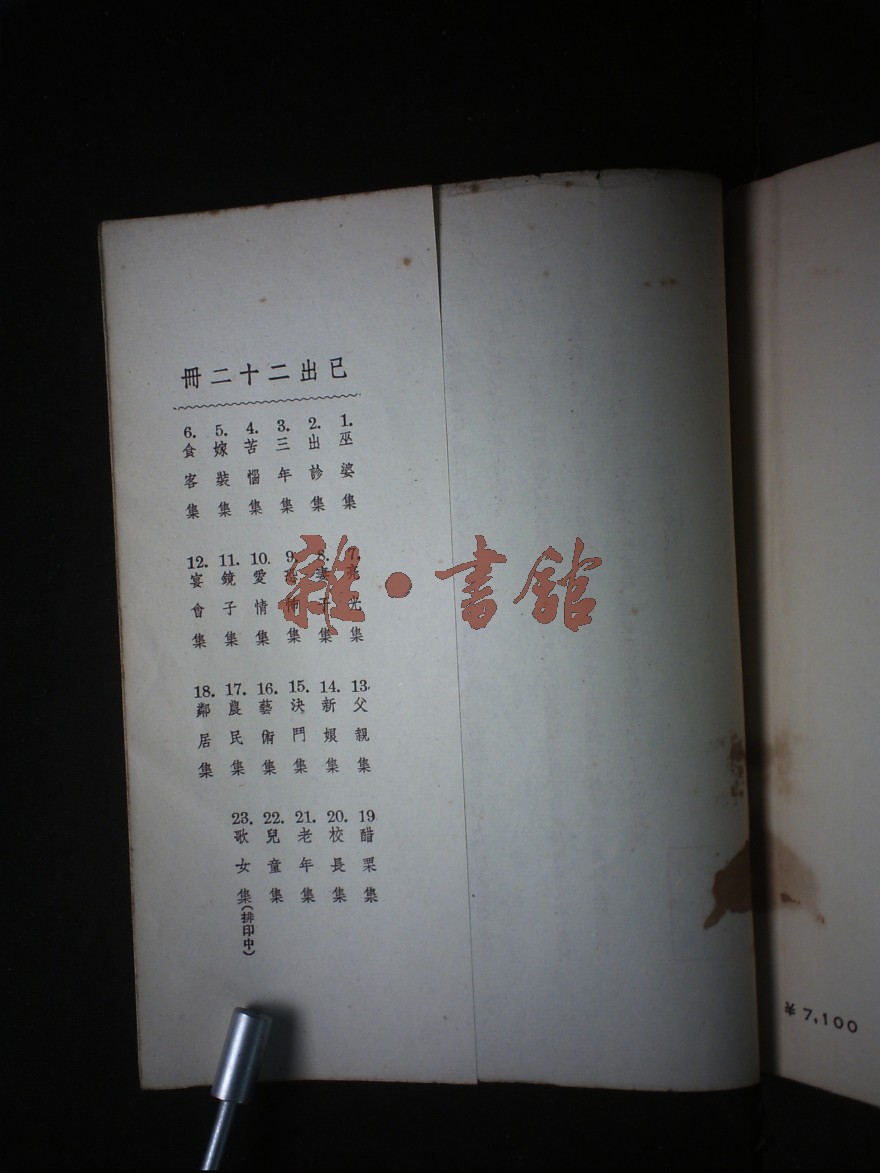 已出二十二冊
1. 巫婆集
2. 出診集
3. 三年集
4. 苦惱集
5. 嫁裝集
6. 食客集
7. 亮光集
8. 妻子集
9. 恐怖集
10. 愛情集
11. 鏡子集
12. 宴會集
13. 父親集
14. 新娘集
15. 決鬥集
16. 藝術集
17. 農民集
18. 鄰居集
19 醋栗集
20. 校長集
21. 老年集
22. 兒童集
23. 歌女集(排印中)
雜·書館
¥7,100